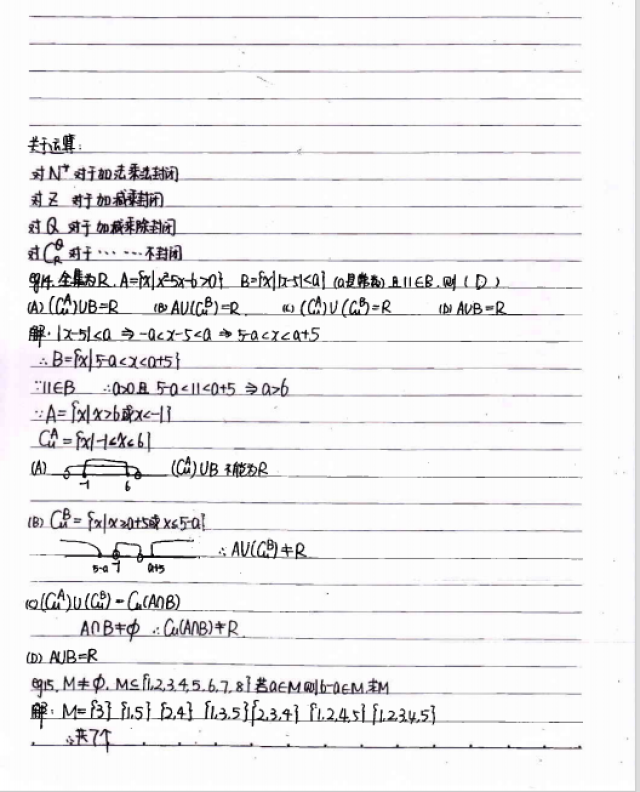 关于运算：
对N⁺ 对于加法乘法封闭
对Z 对于加减乘封闭
对Q 对于加减乘除封闭
对C_R^Q 对于……不封闭
eg14. 全集为R. A={x|x²-5x-6>0} B={x||x-5|<a} (a是常数) 且11∈B. 则 ( D )
(A) (C_u^A)∪B=R (B) A∪(C_u^B)=R. (C) (C_u^A)∪(C_u^B)=R (D) A∪B=R
解. |x-5|<a ⇒ -a<x-5<a ⇒ 5-a<x<a+5
∴B={x|5-a<x<a+5}
∵11∈B ∴a>0且 5-a<11<a+5 ⇒ a>6
∵A={x|x>6或x<-1}
C_u^A={x|-1≤x≤6}
(A) -1 6 (C_u^A)∪B 不能为R
(B) C_u^B={x|x≥a+5或x≤5-a}
5-a -1 a+5 ∴A∪(C_u^B)≠R
(C) (C_u^A)∪(C_u^B)=C_u(A∩B)
A∩B≠∅ ∴C_u(A∩B)≠R
(D) A∪B=R
eg15. M≠∅. M⊆{1,2,3,4,5,6,7,8} 若a∈M则6-a∈M.求M
解：M={3} {1,5} {2,4} {1,3,5} {2,3,4} {1,2,4,5} {1,2,3,4,5}
∴共7个